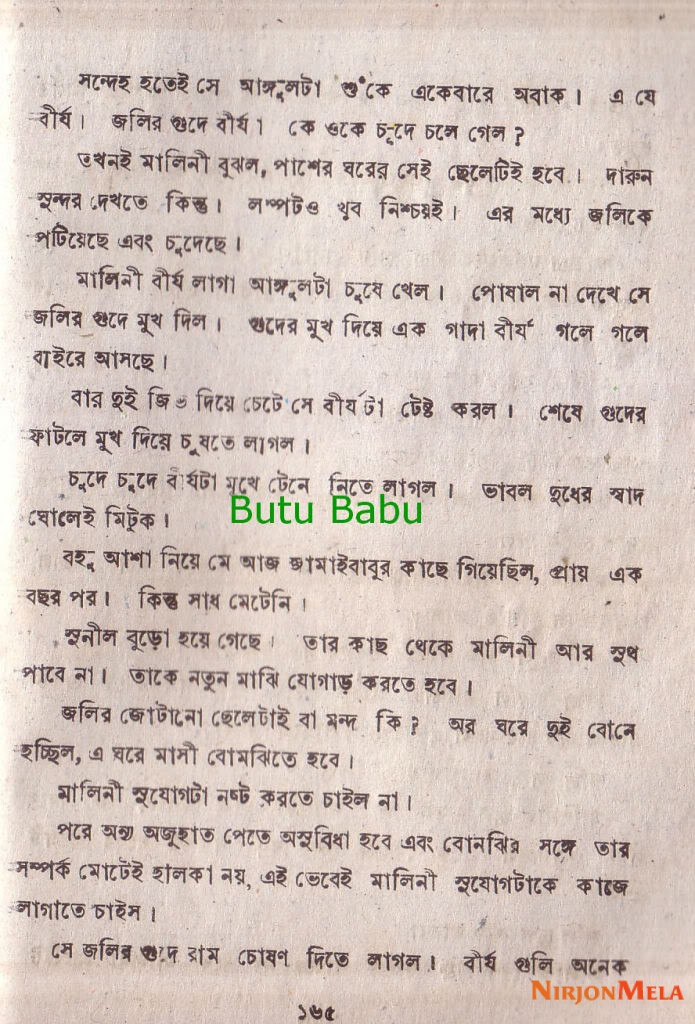 সন্দেহ হতেই সে আঙ্গুলটা শুঁকে একেবারে অবাক। এ যে
বীর্য। জলির গুদে বীর্য। কে ওকে চুদে চলে গেল?
তখনই মালিনী বুঝল, পাশের ঘরের সেই ছেলেটিই হবে। দারুন
সুন্দর দেখতে কিন্তু। লম্পটও খুব নিশ্চয়ই। এর মধ্যে জলিকে
পটিয়েছে এবং চুদেছে।
মালিনী বীর্য লাগা আঙ্গুলটা চুষে খেল। পোষাল না দেখে সে
জলির গুদে মুখ দিল। গুদের মুখ দিয়ে এক গাদা বীর্য গলে গলে
বাইরে আসছে।
বার দুই জিভ দিয়ে চেটে সে বীর্যটা টেষ্ট করল। শেষে গুদের
ফাটলে মুখ দিয়ে চুষতে লাগল।
চুদে চুদে বীর্যটা মুখে টেনে নিতে লাগল। ভাবল দুধের স্বাদ
ঘোলেই মিটুক।
বহু আশা নিয়ে সে আজ জামাইবাবুর কাছে গিয়েছিল, প্রায় এক
বছর পর। কিন্তু সাধ মেটেনি।
সুনীল বুড়ো হয়ে গেছে। তার কাছ থেকে মালিনী আর সুখ
পাবে না। তাকে নতুন মাঝি যোগাড় করতে হবে।
জলির জোটানো ছেলেটাই বা মন্দ কি? অর ঘরে দুই বোনে
হচ্ছিল, এ ঘরে মাসী বোনঝিতে হবে।
মালিনী সুযোগটা নষ্ট করতে চাইল না।
পরে অন্য অজুহাত পেতে অসুবিধা হবে এবং বোনঝির সঙ্গে তার
সম্পর্ক মোটেই হালকা নয়, এই ভেবেই মালিনী সুযোগটাকে কাজে
লাগাতে চাইল।
সে জলির গুদে রাম চোষণ দিতে লাগল। বীর্য গুলি অনেক
Butu Babu
NIRJONMELA
১৬৫